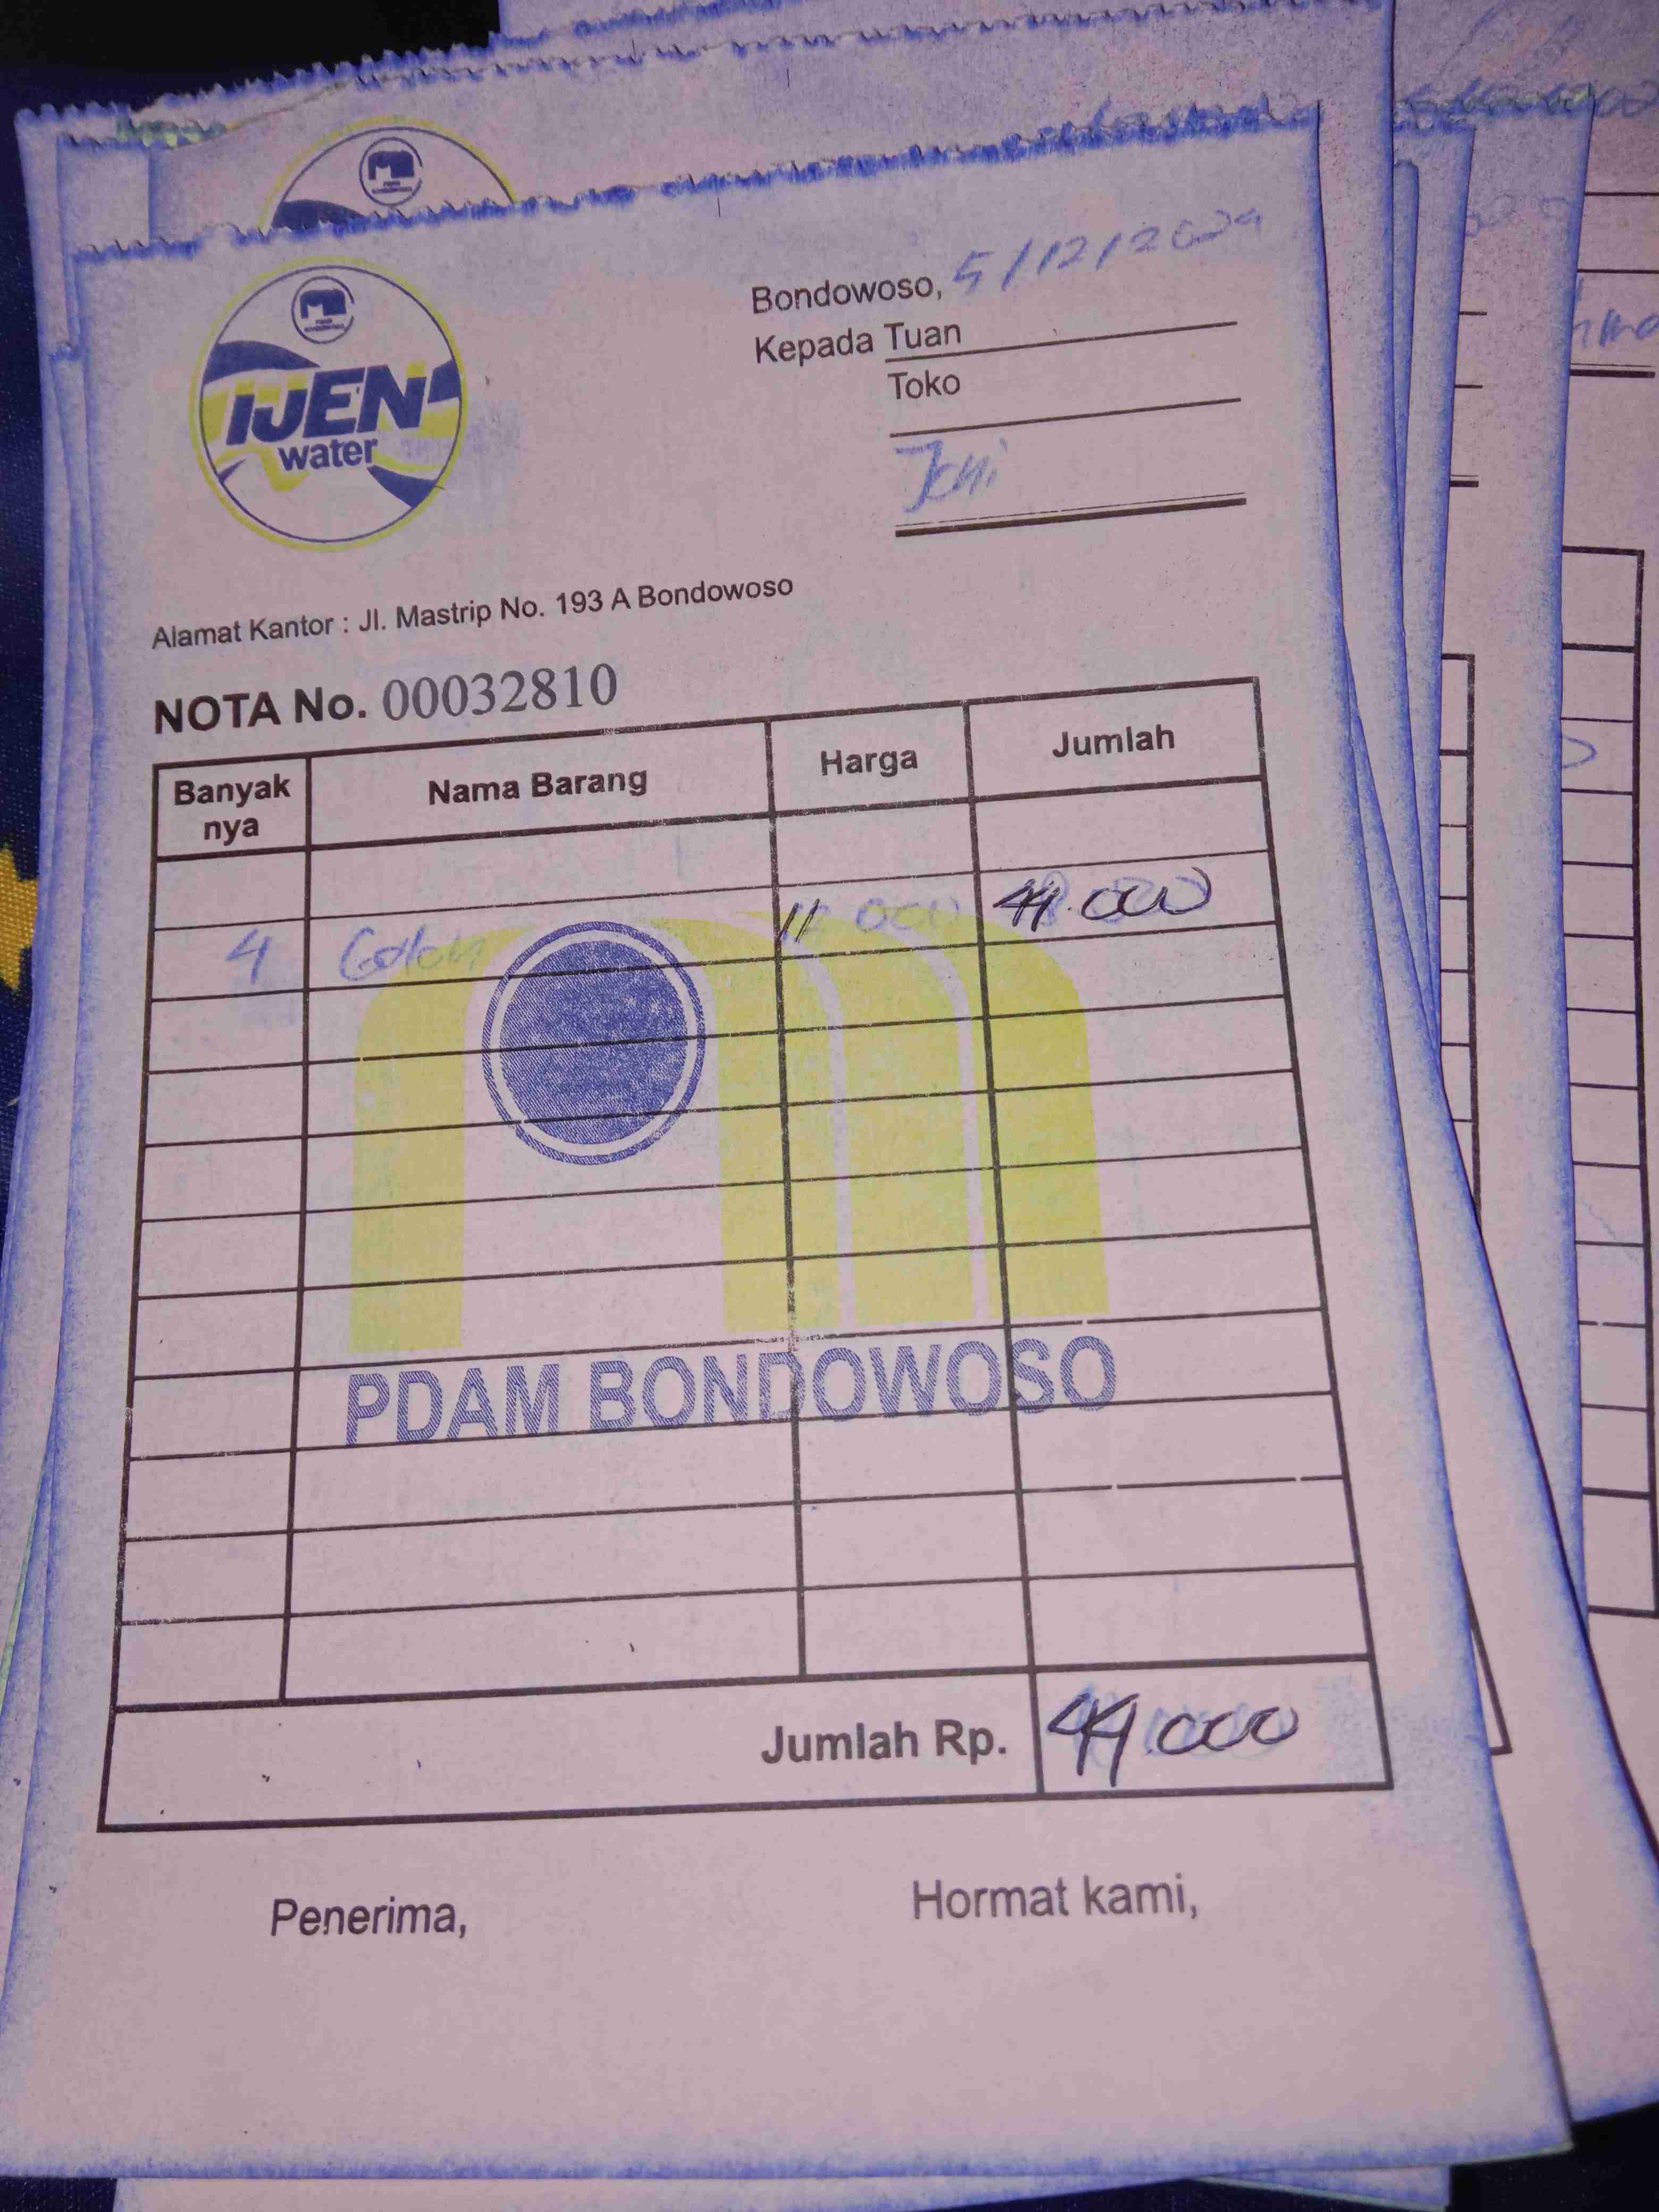 IJEN
water
Bondowoso, 5/12/2024
Kepada Tuan
Toko
Alamat Kantor : Jl. Mastrip No. 193 A Bondowoso
NOTA No. 00032810
Banyak nya Nama Barang Harga Jumlah
4 Galon 11 000 44.000
PDAM BONDOWOSO
Jumlah Rp. 44.000
Penerima, Hormat kami,